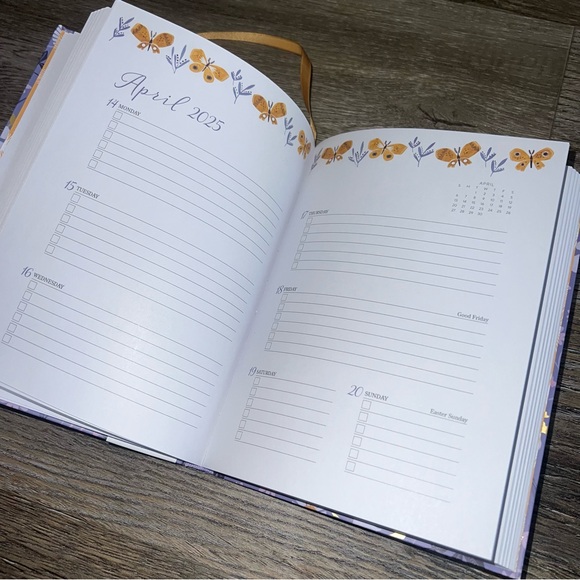 April 2025
14 MONDAY
15 TUESDAY
16 WEDNESDAY
APRIL
17 THURSDAY
18 FRIDAY
Good Friday
19 SATURDAY
20 SUNDAY
Easter Sunday